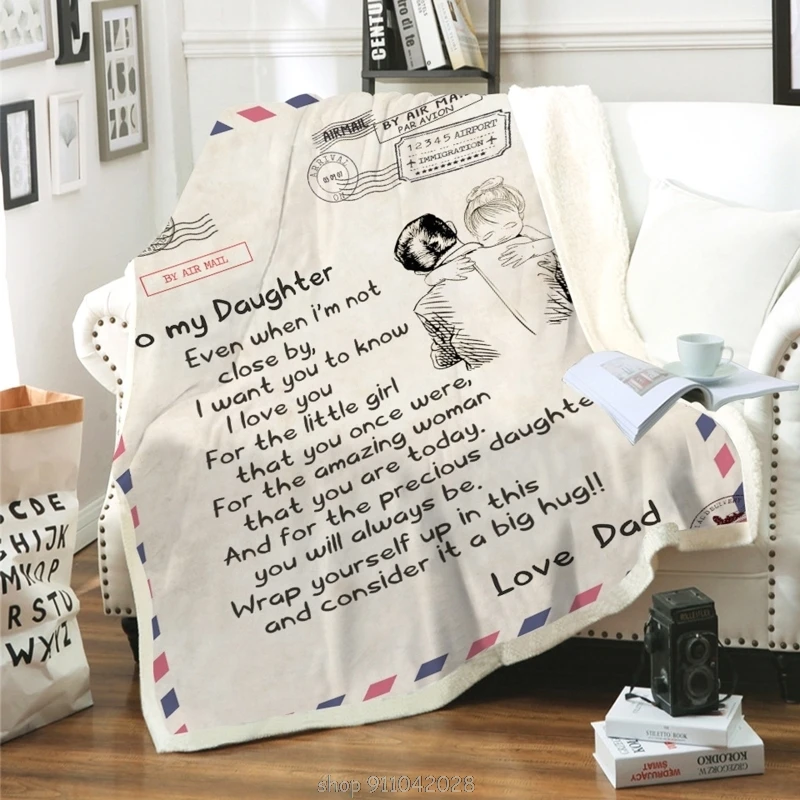 E
CENTU
tro di te
AIRMAIL
BY AIR MA
PAR AVION
12345 AIRPORT
IMMIGRATION
ARRIVAL
ON
BY AIR MAIL
o my Daughter
Even when i'm not
close by,
I want you to know
I love you
For the little girl
that you once were,
For the amazing woman
that you are today.
And for the precious daughte
you will always be.
Wrap yourself up in this
and consider it a big hug!!
Love Dad
CDE
GHIJK
MNOP
RSTU
WXYZ
GRZEGORZEW
KOŁODKO
WĘDRUJĄCY
ŚWIAT
shop 911042028